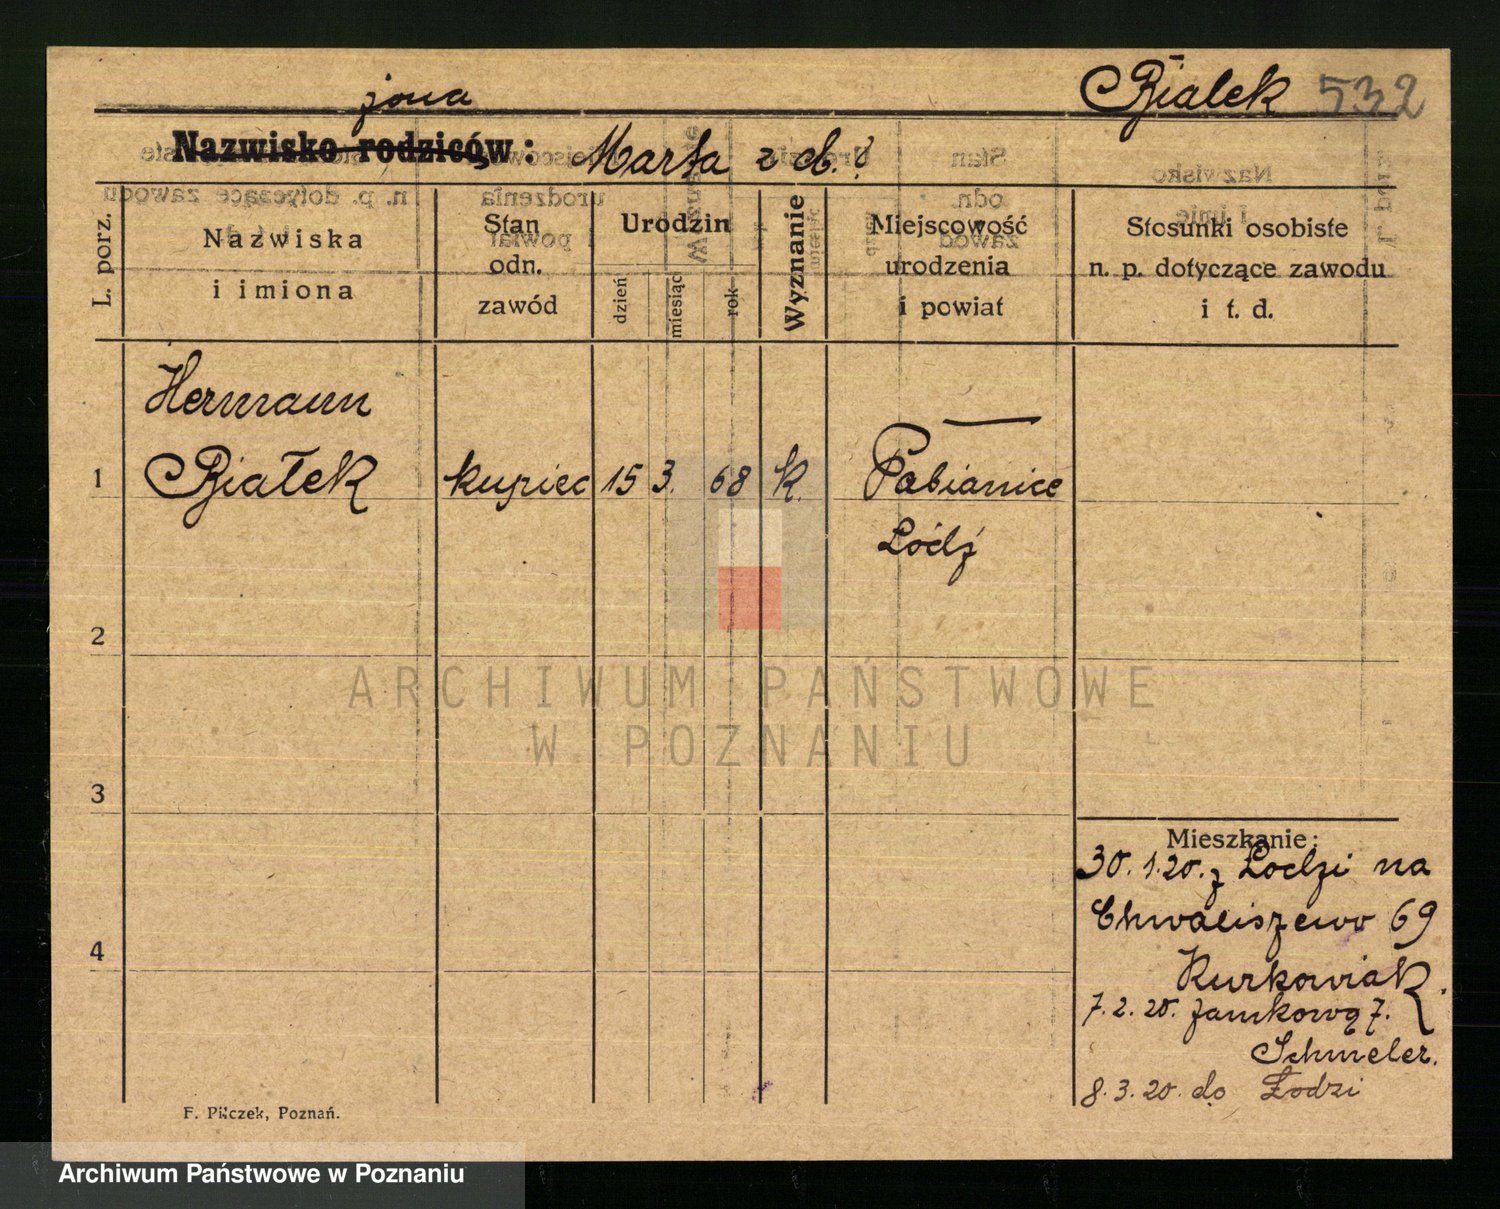 Białek 532
żona
Nazwisko rodziców: Marta z d. ?
L. porz.
Nazwiska
i imiona
Stan
odn.
zawód
Urodzin
dzień
miesiąc
rok
Wyznanie
Miejscowość
urodzenia
i powiat
Stosunki osobiste
n. p. dotyczące zawodu
i t. d.
Hermann
1 Białek kupiec 15 3. 68 k. Pabianice
Łódź
2
3
4
Mieszkanie:
30.1.20. z Łodzi na
Chwaliszewo 69
Kurkowiak.
7.2.20. Zamkową 7.
Schmeler.
8.3.20. do Łodzi
F. Pilczek, Poznań.
ARCHIWUM PAŃSTWOWE
W POZNANIU
Archiwum Państwowe w Poznaniu